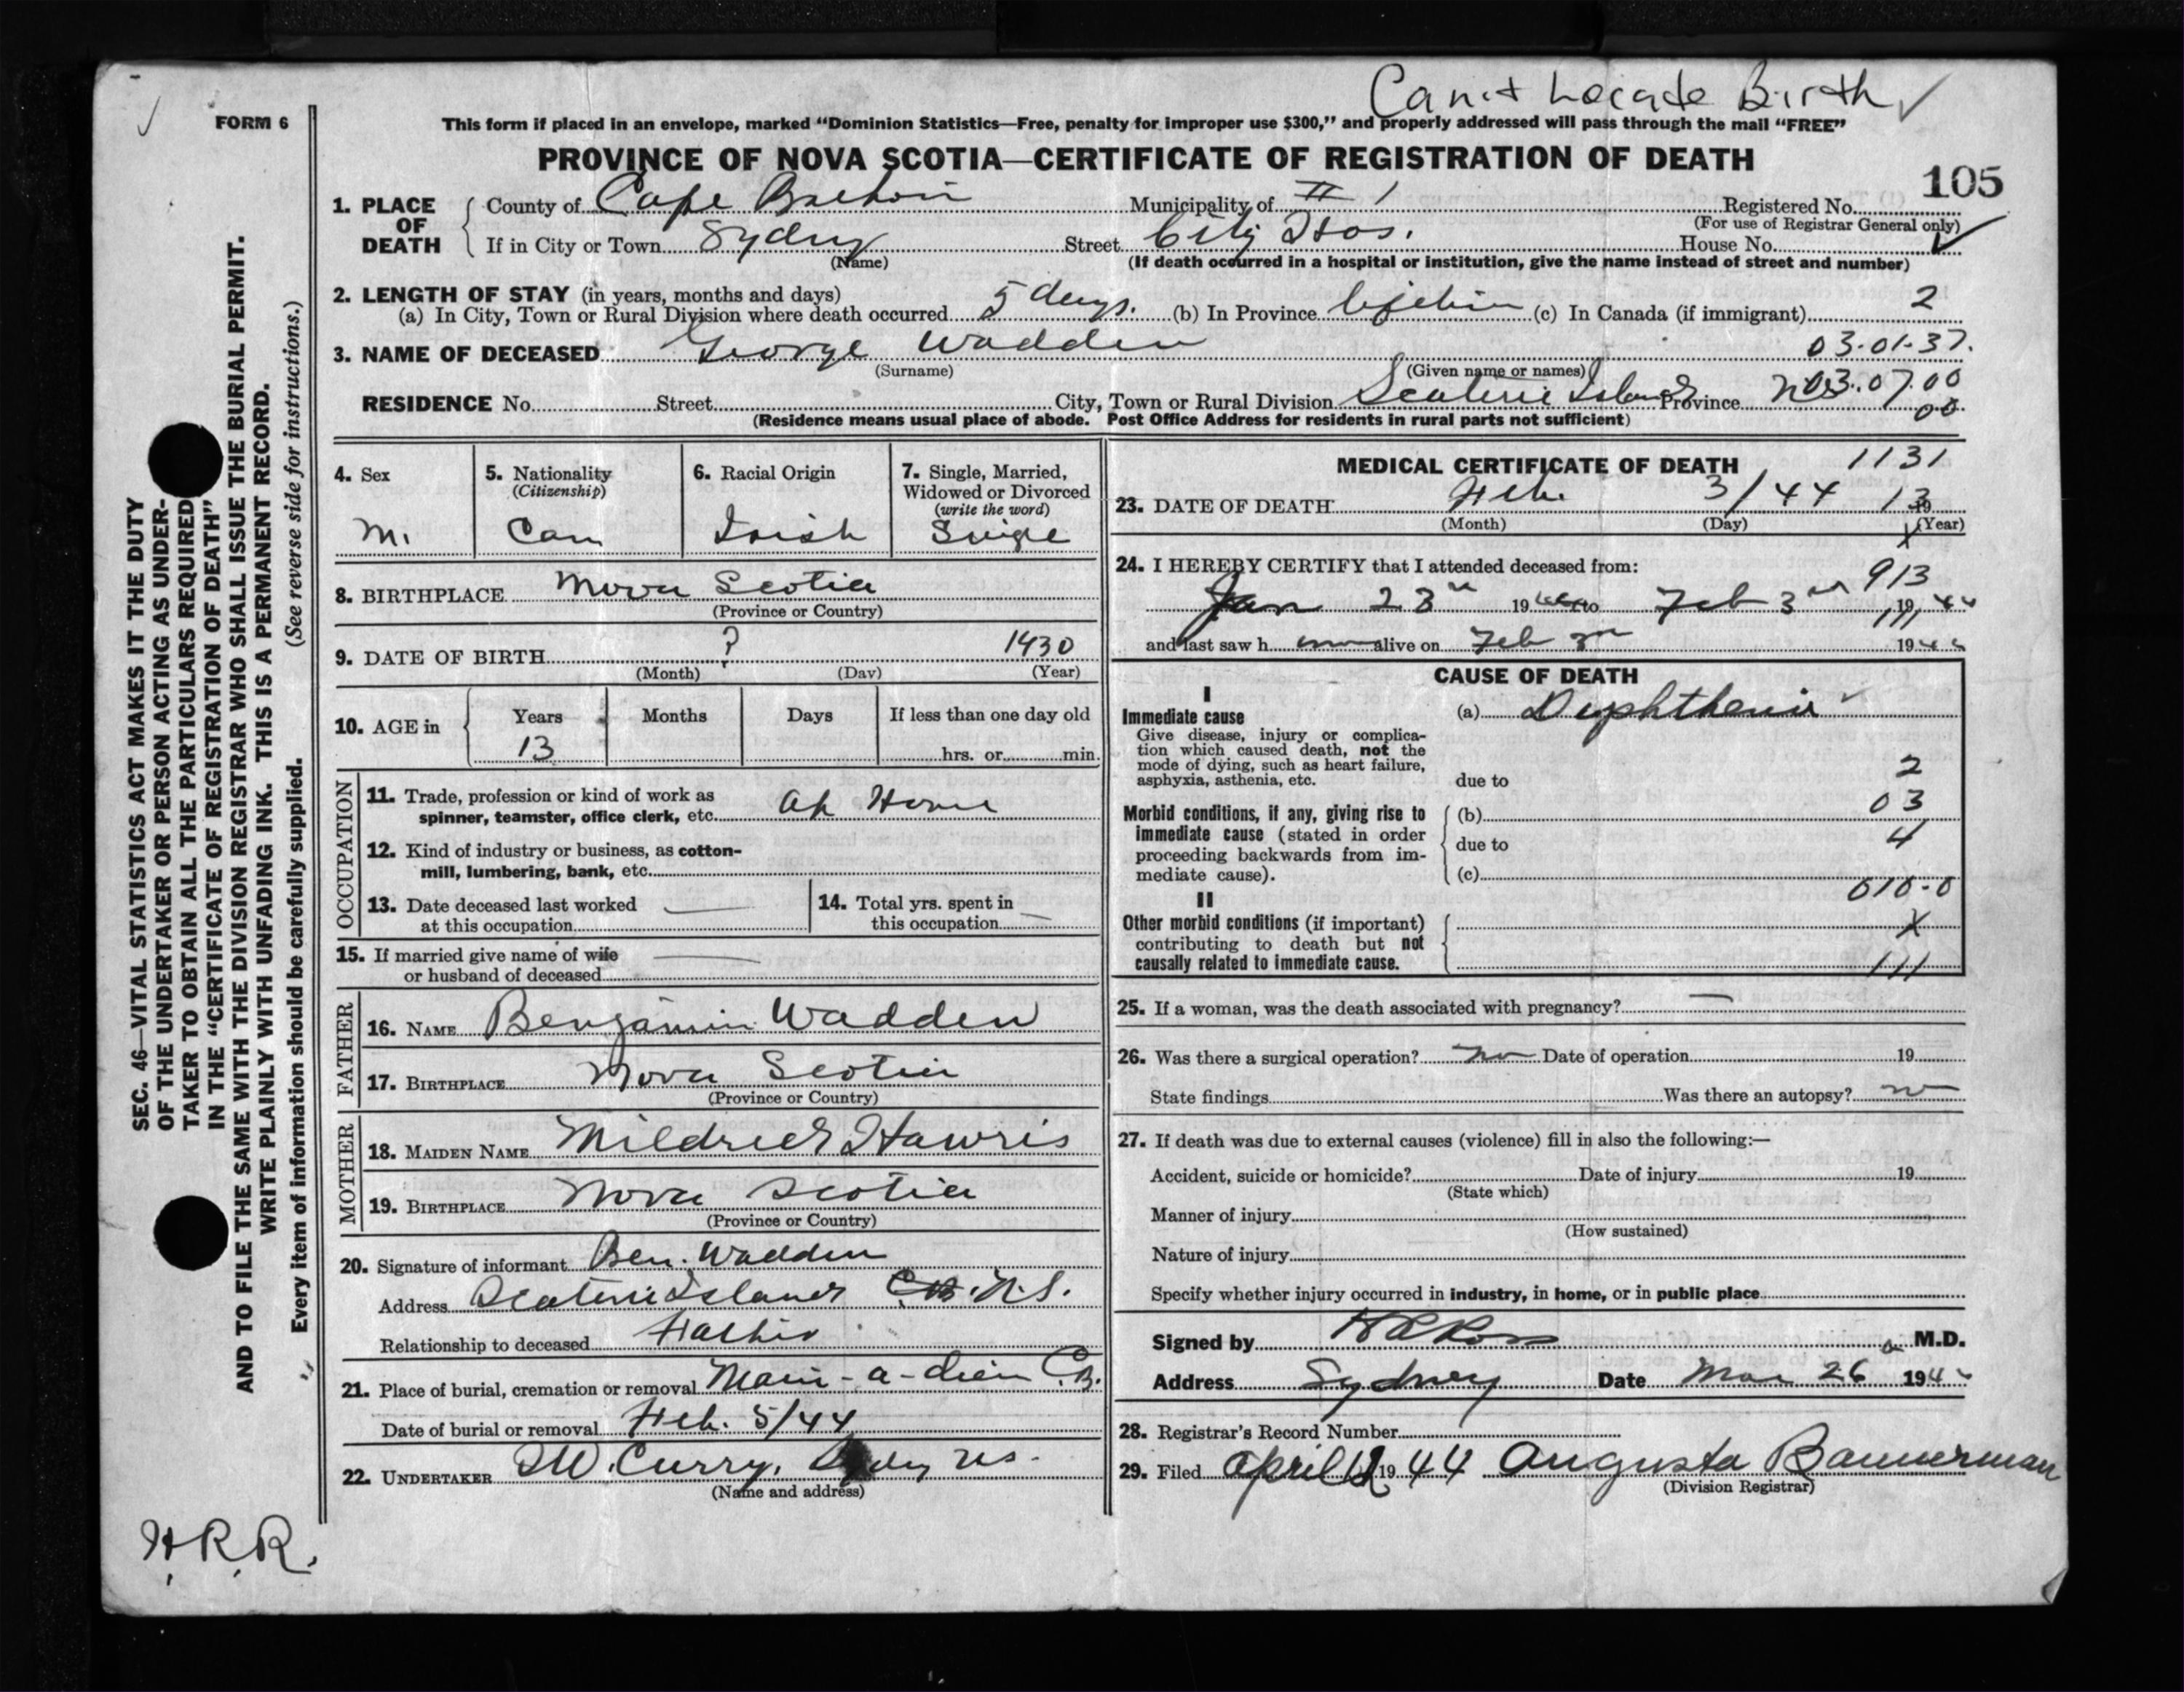 Can't Locate Birth ✓
FORM 6
This form if placed in an envelope, marked “Dominion Statistics—Free, penalty for improper use $300,” and properly addressed will pass through the mail “FREE”
PROVINCE OF NOVA SCOTIA—CERTIFICATE OF REGISTRATION OF DEATH
105
1. PLACE OF DEATH
County of Cape Breton Municipality of # 1 Registered No.
(For use of Registrar General only)
If in City or Town Sydney Street City Hos. House No.
(Name) (If death occurred in a hospital or institution, give the name instead of street and number)
2. LENGTH OF STAY (in years, months and days)
(a) In City, Town or Rural Division where death occurred 5 days. (b) In Province (c) In Canada (if immigrant) 2
3. NAME OF DECEASED George Wadden 03.01.37.
(Surname) (Given name or names)
RESIDENCE No. Street City, Town or Rural Division Scaterie Island Province 03.07.00
00
(Residence means usual place of abode. Post Office Address for residents in rural parts not sufficient)
4. Sex
M.
5. Nationality
(Citizenship)
Can
6. Racial Origin
Irish
7. Single, Married,
Widowed or Divorced
(write the word)
Single
8. BIRTHPLACE Nova Scotia
(Province or Country)
9. DATE OF BIRTH ? 1930
(Month) (Day) (Year)
10. AGE in
Years Months Days If less than one day old
13 hrs. or min.
OCCUPATION
11. Trade, profession or kind of work as
spinner, teamster, office clerk, etc. At Home
12. Kind of industry or business, as cotton-
mill, lumbering, bank, etc.
13. Date deceased last worked
at this occupation
14. Total yrs. spent in
this occupation
15. If married give name of wife
or husband of deceased
FATHER
16. NAME Benjamin Wadden
17. BIRTHPLACE Nova Scotia
(Province or Country)
MOTHER
18. MAIDEN NAME Mildred Hawris
19. BIRTHPLACE Nova Scotia
(Province or Country)
20. Signature of informant Ben. Wadden
Address Scaterie Island C.B. N.S.
Relationship to deceased Father
21. Place of burial, cremation or removal Main-a-dieu C.B.
Date of burial or removal Feb. 5/44
22. UNDERTAKER W. Curry, Sydney NS.
(Name and address)
MEDICAL CERTIFICATE OF DEATH 1131
23. DATE OF DEATH Feb. 3/44 13 19
(Month) (Day) (Year)
24. I HEREBY CERTIFY that I attended deceased from:
913
Jan 23rd 1944 to Feb 3rd 1944
111
and last saw h im alive on Feb 3rd 1944
CAUSE OF DEATH
I
Immediate cause
Give disease, injury or complica-
tion which caused death, not the
mode of dying, such as heart failure,
asphyxia, asthenia, etc.
(a) Diphtheria ✓
due to 2
Morbid conditions, if any, giving rise to
immediate cause (stated in order
proceeding backwards from im-
mediate cause).
(b) 03
due to 4
(c)
010-0
II
Other morbid conditions (if important)
contributing to death but not
causally related to immediate cause.
X
111
25. If a woman, was the death associated with pregnancy?
26. Was there a surgical operation? no Date of operation 19
State findings Was there an autopsy? no
27. If death was due to external causes (violence) fill in also the following:—
Accident, suicide or homicide? Date of injury 19
(State which)
Manner of injury
(How sustained)
Nature of injury
Specify whether injury occurred in industry, in home, or in public place
Signed by Ross M.D.
Address Sydney Date Mar 26 194
28. Registrar's Record Number
29. Filed April 1944 Augusta Bannerman
(Division Registrar)
SEC. 46—VITAL STATISTICS ACT MAKES IT THE DUTY
OF THE UNDERTAKER OR PERSON ACTING AS UNDER-
TAKER TO OBTAIN ALL THE PARTICULARS REQUIRED
IN THE “CERTIFICATE OF REGISTRATION OF DEATH”
AND TO FILE THE SAME WITH THE DIVISION REGISTRAR WHO SHALL ISSUE THE BURIAL PERMIT.
WRITE PLAINLY WITH UNFADING INK. THIS IS A PERMANENT RECORD.
Every item of information should be carefully supplied. (See reverse side for instructions.)
H.R.R.